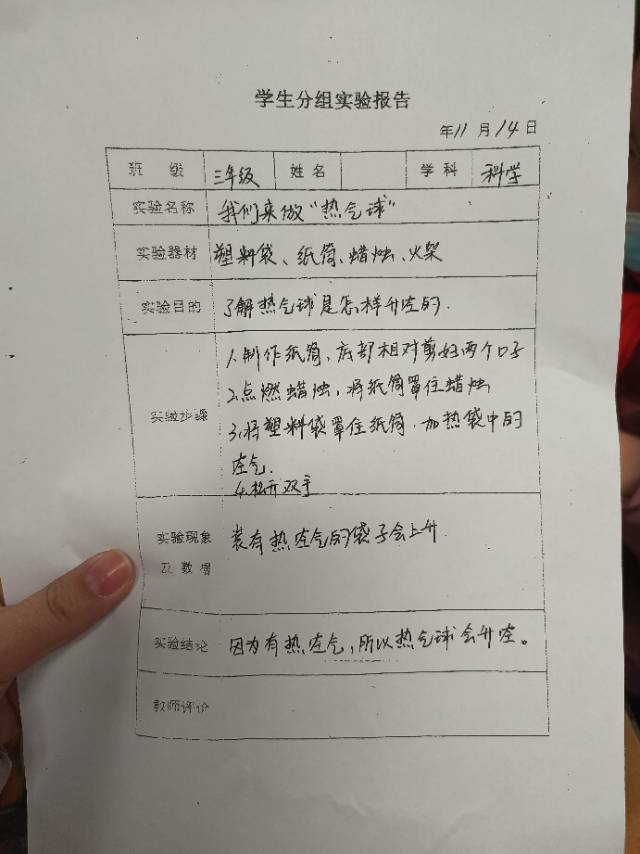 学生分组实验报告
年11月14日
班 级 三年级 姓名 学科 科学
实验名称 我们来做"热气球"
实验器材 塑料袋、纸筒、蜡烛、火柴
实验目的 了解热气球是怎样升空的.
实验步骤
1.制作纸筒,底部相对剪好两个口子
2.点燃蜡烛,将纸筒罩住蜡烛
3.将塑料袋罩住纸筒.加热袋中的
空气.
4.松开双手
实验现象 装有热空气的袋子会上升
及数得
实验结论 因为有热空气,所以热气球会升空。
教师评价